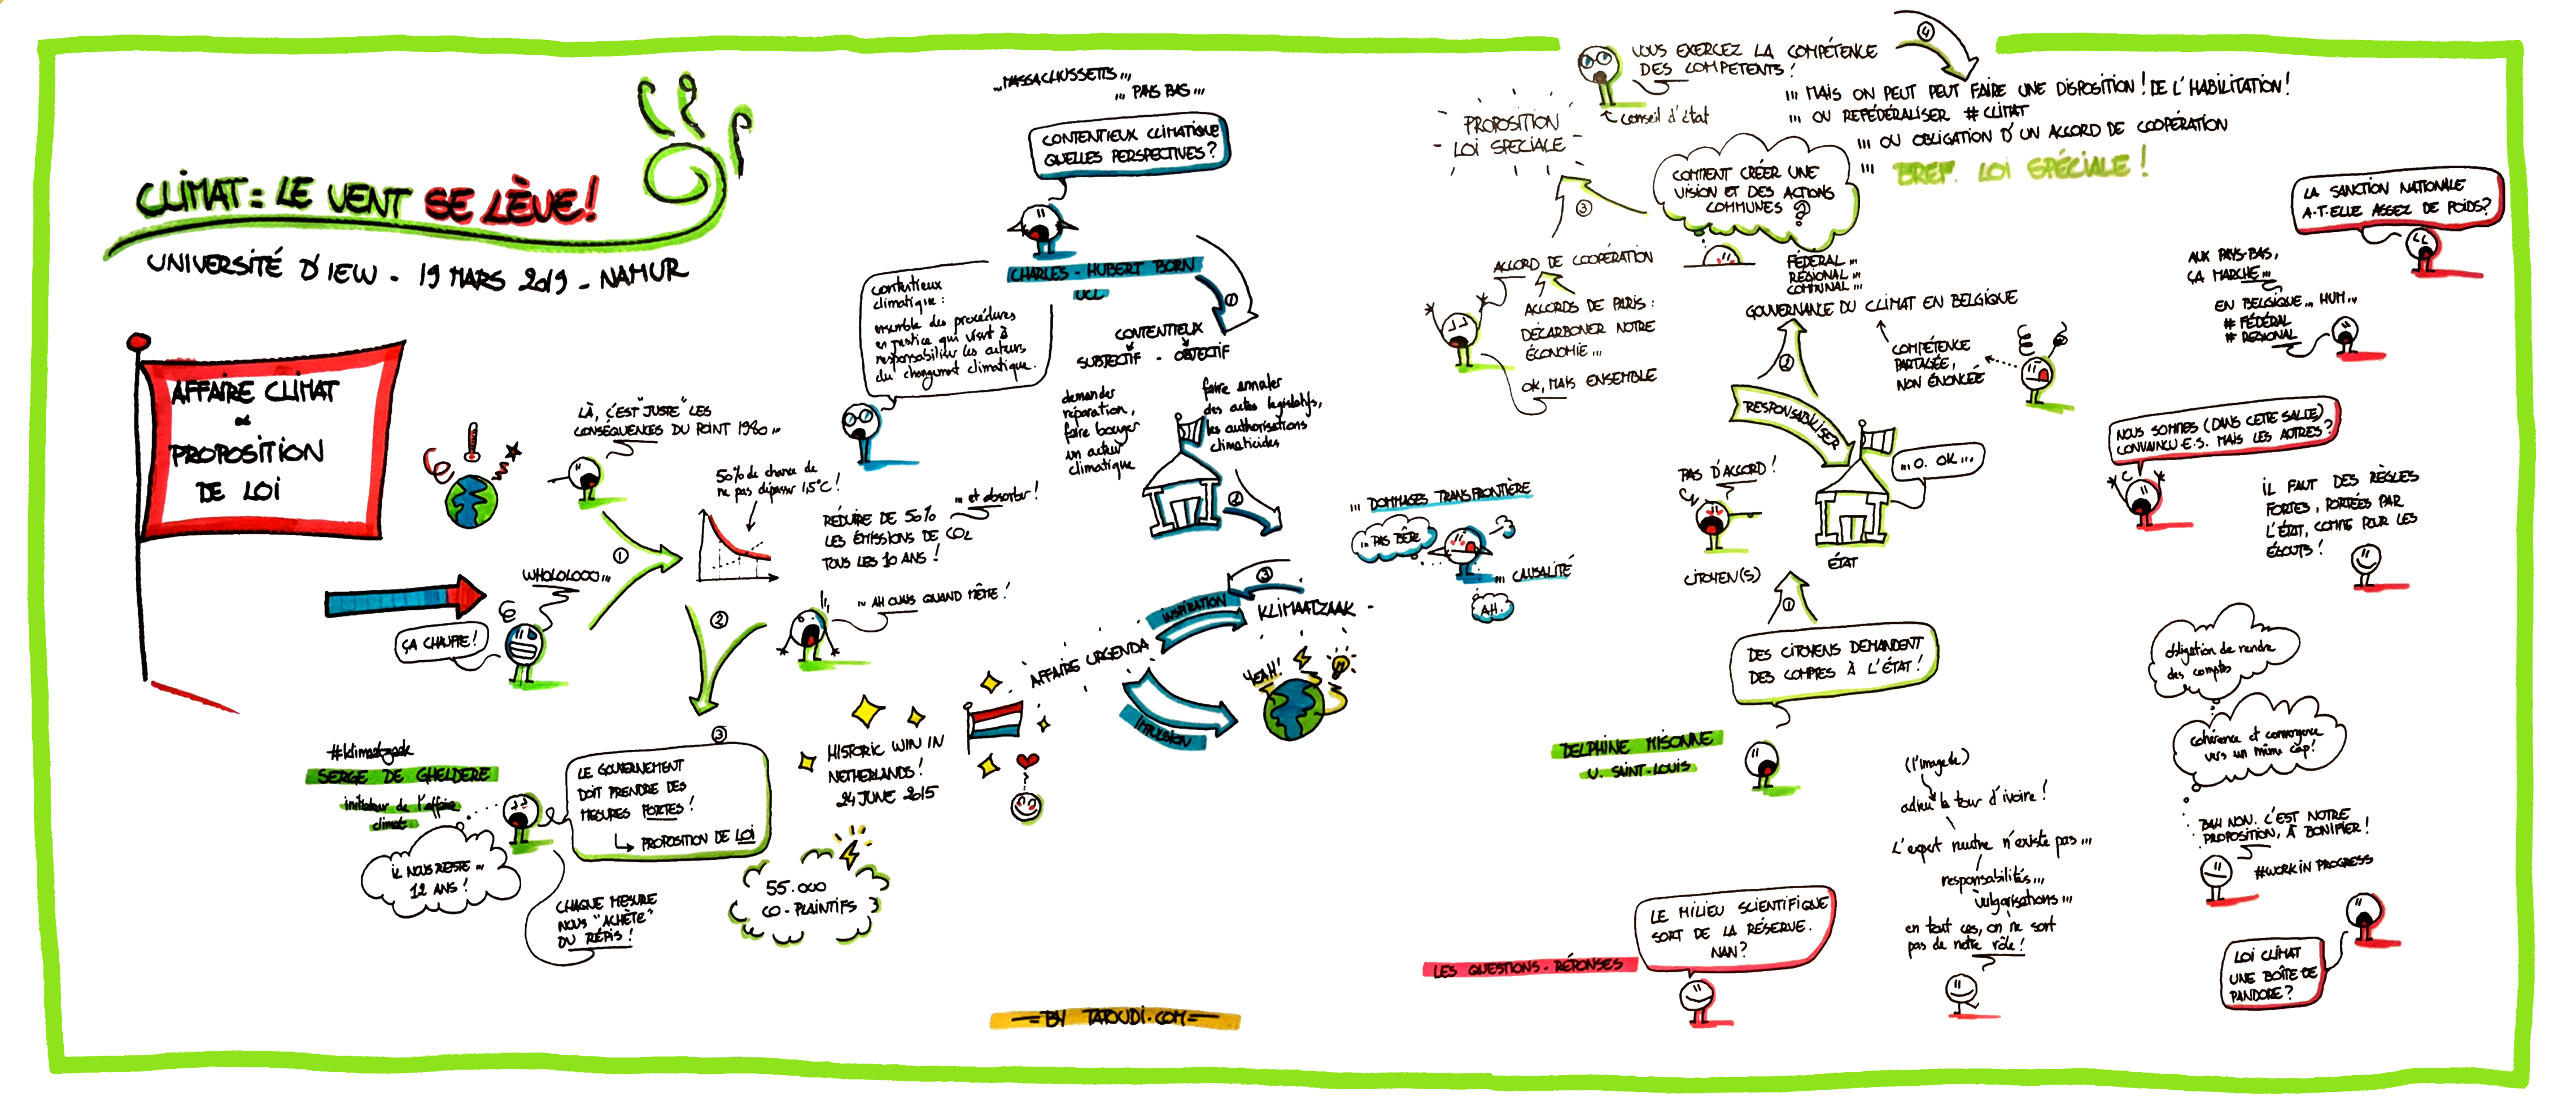 CLIMAT = LE VENT SE LÈVE!
UNIVERSITÉ D'IEW - 19 MARS 2019 - NAMUR
AFFAIRE CLIMAT
∝
PROPOSITION
DE LOI
LÀ, C'EST "JUSTE" LES
CONSÉQUENCES DU POINT 1980...
WHOLOLOOO...
ÇA CHAUFFE!
①
50% de chance de
ne pas dépasser 1,5°C!
... et absorber!
RÉDUIRE DE 50%
LES ÉMISSIONS DE CO2
TOUS LES 10 ANS!
... AH OUAIS QUAND MÊME!
②
③
#klimaatzaak
SERGE DE GHELDERE
initiateur de l'affaire
climat
IL NOUS RESTE...
12 ANS!
LE GOUVERNEMENT
DOIT PRENDRE DES
MESURES FORTES!
↳ PROPOSITION DE LOI
CHAQUE MESURE
NOUS "ACHÈTE"
DU RÉPIS!
55.000
CO-PLAINTIFS
...MASSACHUSSETTS...
... PAYS BAS...
CONTENTIEUX CLIMATIQUE
QUELLES PERSPECTIVES?
CHARLES - HUBERT BORN
UCL
contentieux
climatique:
ensemble des procédures
en justice qui visent à
responsabiliser les acteurs
du changement climatique.
①
CONTENTIEUX
SUBJECTIF - OBJECTIF
demander
réparation,
faire bouger
un acteur
climatique
faire annuler
des actes législatifs,
les authorisations
climaticides
②
③
INSPIRATION
KLIMAATZAAK -
AFFAIRE URGENDA
IMPULSION
YEAH!
HISTORIC WIN IN
NETHERLANDS!
24 JUNE 2015
... DOMMAGES TRANSFRONTIÈRE
... PAS BÊTE
... CAUSALITÉ
AH.
DELPHINE MISONNE
U. SAINT-LOUIS
DES CITOYENS DEMANDENT
DES COMPTES À L'ÉTAT!
①
CITOYEN(S)
PAS D'ACCORD!
ÉTAT
...O. OK...
RESPONSABILISER
②
GOUVERNANCE DU CLIMAT EN BELGIQUE
FÉDÉRAL...
RÉGIONAL...
COMMUNAL...
COMPÉTENCE
PARTAGÉE,
NON ÉNONCÉE
COMMENT CRÉER UNE
VISION ET DES ACTIONS
COMMUNES?
ACCORD DE COOPÉRATION
ACCORDS DE PARIS:
DÉCARBONER NOTRE
ÉCONOMIE...
OK, MAIS ENSEMBLE
③
PROPOSITION
- LOI SPECIALE -
VOUS EXERCEZ LA COMPÉTENCE
DES COMPETENTS!
conseil d'état
④
... MAIS ON PEUT PEUT FAIRE UNE DISPOSITION! DE L'HABILITATION!
... OU REFÉDÉRALISER #CLIMAT
... OU OBLIGATION D'UN ACCORD DE COOPÉRATION
... BREF. LOI SPÉCIALE!
LES QUESTIONS-RÉPONSES
LE MILIEU SCIENTIFIQUE
SORT DE LA RÉSERVE.
NAN?
(l'image de)
adieu la tour d'ivoire!
L'expert neutre n'existe pas...
responsabilités...
vulgarisations...
en tout cas, on ne sort
pas de notre rôle!
LA SANCTION NATIONALE
A-T-ELLE ASSEZ DE POIDS?
AUX PAYS-BAS,
ÇA MARCHE...
EN BELGIQUE... HUM...
# FÉDÉRAL
# REGIONAL
NOUS SOMMES (DANS CETTE SALLE)
CONVAINCU·E·S. MAIS LES AUTRES?
IL FAUT DES RÈGLES
FORTES, PORTÉES PAR
L'ÉTAT, COMME POUR LES
ÉGOUTS!
obligation de rendre
des comptes
cohérence et convergence
vers un même cap!
BAH NON. C'EST NOTRE
PROPOSITION, À BONIFIER!
#WORK IN PROGRESS
LOI CLIMAT
UNE BOÎTE DE
PANDORE?
= BY TATOUDI.COM =